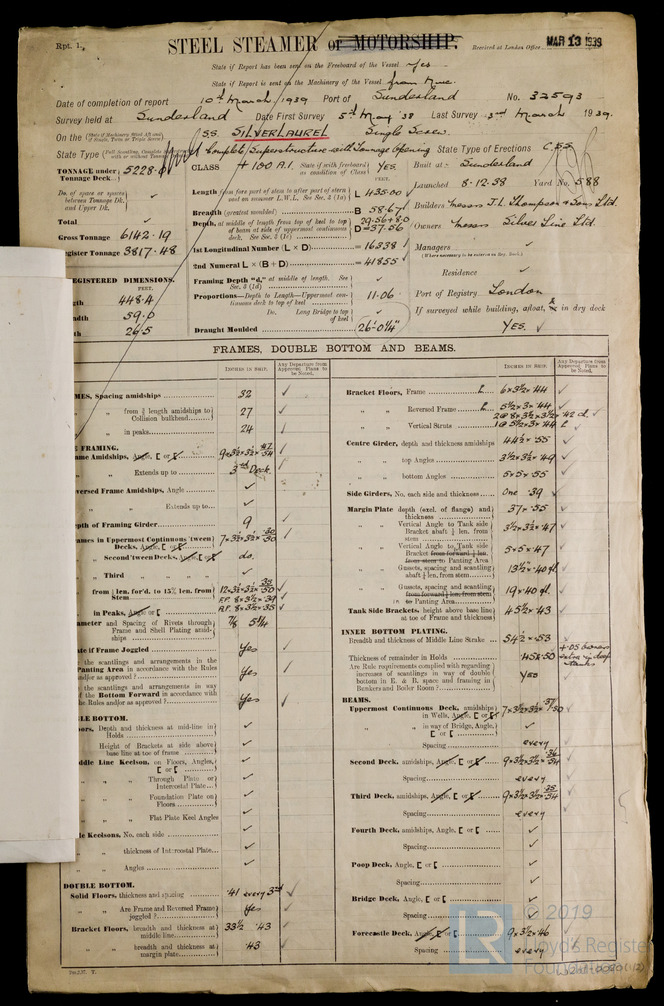 Rpt. 1.
STEEL STEAMER or MOTORSHIP.
Received at London Office MAR 13 1939
State if Report has been sent on the Freeboard of the Vessel Yes
State if Report is sent on the Machinery of the Vessel from
Date of completion of report 10th March/1939 Port of Sunderland No. 32593
Survey held at Sunderland Date First Survey 5th May '38 Last Survey 3rd March 1939.
On the S.S. SILVERLAUREL Single Screw.
State Type Complete Superstructure with Tonnage Opening State Type of Erections C.S.S.
TONNAGE under Tonnage Deck 5228.
Do. of space or spaces between Tonnage Dk. and Upper Dk.
Total
Gross Tonnage 6142.19
Register Tonnage 3817.48
REGISTERED DIMENSIONS.
FEET.
448.4
59.0
26.5
CLASS + 100 A.1. State if with freeboard as condition of Class YES
FEET.
Length from fore part of stem to after part of stern post on summer L.W.L. See Sec. 3 (1a) L 435.00
Breadth (greatest moulded) B 58.67
Depth, at middle of length from top of keel to top of beam at side of uppermost continuous deck. See Sec. 3 (1c) 29.56+8.0 D=37.56
1st Longitudinal Number (L × D) =16338
2nd Numeral L × (B + D) =41855
Framing Depth "d," at middle of length. See Sec. 3 (1d)
Proportions—Depth to Length—Uppermost continuous deck to top of keel 11.06
Do. Long Bridge to top of keel
Draught Moulded 26'-0¼"
Built at Sunderland
Launched 8.12.38 Yard No. 588
Builders Messrs J.L. Thompson & Sons Ltd.
Owners Messrs Silver Line Ltd.
Managers
(Where necessary to be entered in Reg. Book.)
Residence
Port of Registry London
If surveyed while building, afloat, & in dry dock
YES.
FRAMES, DOUBLE BOTTOM AND BEAMS.
INCHES IN SHIP.
Any Departure from Approved Plans to be Noted.
INCHES IN SHIP.
Any Departure from Approved Plans to be Noted.
MES, Spacing amidships 32
" " from ¾ length amidships to Collision bulkhead 27
" " in peaks 24
E FRAMING.
ame Amidships, Angle, [ or [
" " Extends up to 3rd Deck
versed Frame Amidships, Angle
" " Extends up to
epth of Framing Girder 9
rames in Uppermost Continuous 'tween Decks, Angle, [ or [
" " Second 'tween Decks, Angle, [ or [ do.
" " Third " "
" " from ¾ len. for'd. to 15% len. from Stem
" " in Peaks, Angle or [ F.P. 8×3½×.39
A.P. 8×3½×.35
ameter and Spacing of Rivets through Frame and Shell Plating amidships 7/8 5¼
ate if Frame Joggled Yes
the scantlings and arrangements in the Panting Area in accordance with the Rules and/or as approved? Yes
the scantlings and arrangements in way of the Bottom Forward in accordance with the Rules and/or as approved? Yes
LE BOTTOM.
ors, Depth and thickness at mid-line in Holds
Height of Brackets at side above base line at toe of frame
ddle Line Keelson, on Floors, Angles, [ or [
" " Through Plate or Intercostal Plate
" " Foundation Plate on Floors
" " Flat Plate Keel Angles
le Keelsons, No. each side
" " thickness of Intercostal Plate
" " Angles
DOUBLE BOTTOM.
Solid Floors, thickness and spacing .41 every 3rd
" " Are Frame and Reversed Frame joggled? Yes
Bracket Floors, breadth and thickness at middle line 33½ .43
" " breadth and thickness at margin plate .43
Bracket Floors, Frame 6×3½×.44
" " Reversed Frame 5½×3×.44
" " Vertical Struts
Centre Girder, depth and thickness amidships 44½×.55
" " top Angles 3½×3½×.49
" " bottom Angles 5×5×.55
Side Girders, No. each side and thickness One .39
Margin Plate depth (excl. of flange) and thickness 37×.55
" " Vertical Angle to Tank side Bracket abaft ¼ len. from stem 3½×3½×.47
" " Vertical Angle to Tank side Bracket from forward ¼ len. from stem to Panting Area 5×5×.47
" " Gussets, spacing and scantling abaft ¼ len. from stem 13½×.40 fl.
" " Gussets, spacing and scantling from forward ¼ len. from stem to Panting Area 19×.40 fl.
Tank Side Brackets, height above base line at toe of Frame and thickness 45½×.43
INNER BOTTOM PLATING.
Breadth and thickness of Middle Line Strake 54½×.53
Thickness of remainder in Holds .45 & .50
Are Rule requirements complied with regarding increases of scantlings in way of double bottom in E. & B. space and framing in Bunkers and Boiler Room? YES
BEAMS.
Uppermost Continuous Deck, amidships in Wells, Angle, [ or [
" " in way of Bridge, Angle, [ or [
Spacing every
Second Deck, amidships, Angle, [ or [
Spacing every
Third Deck, amidships, Angle, [ or [
Spacing every
Fourth Deck, amidships, Angle, [ or [
Spacing
Poop Deck, Angle, [ or [
Spacing
Bridge Deck, Angle, [ or [
Spacing
Forecastle Deck, Angle, [ or [ 9×3½×.46
Spacing every
LR
© 2019
Lloyd's Register
Foundation